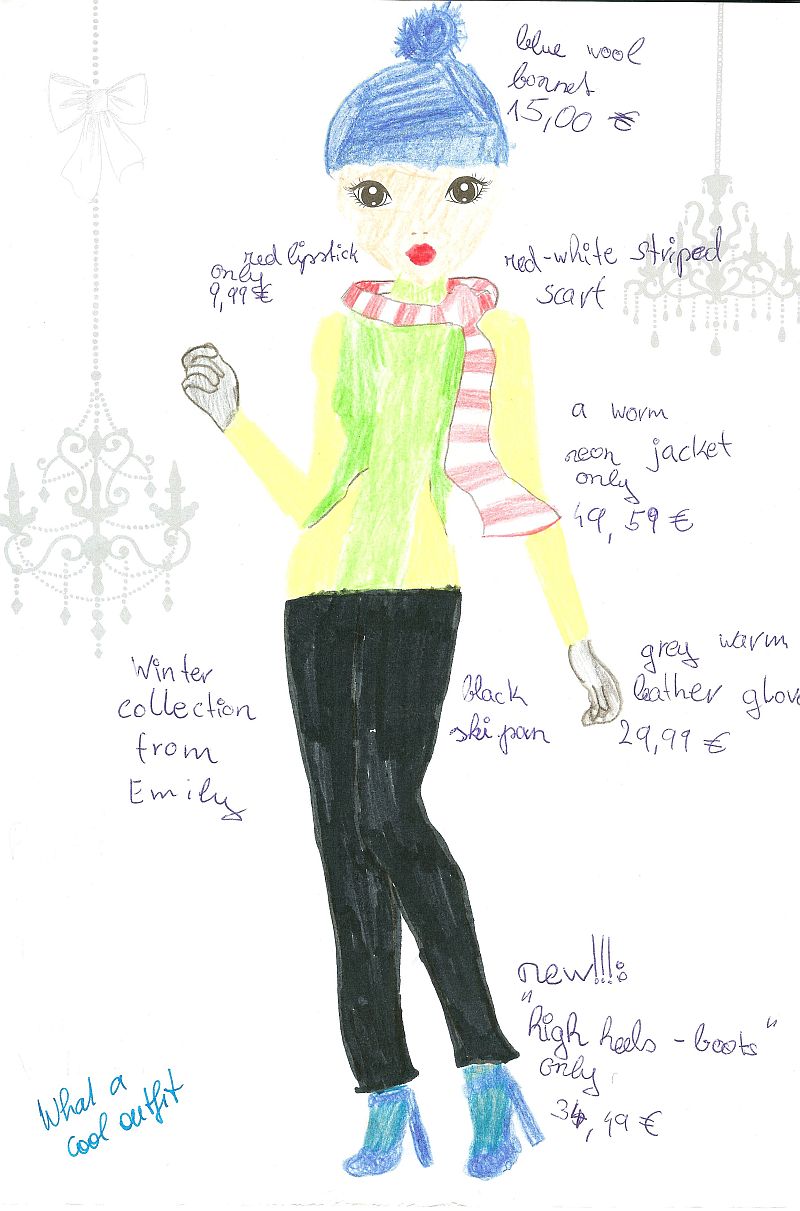 blue wool
bonnet
15,00 €
red lipstick
only
9,99 €
red-white striped
scarf
a worm
neon jacket
only
49,59 €
grey warm
leather glov
29,99 €
black
ski pan
Winter
collection
from
Emily
new!!!:
"high heels - boots"
only
34,49 €
What a
cool outfit